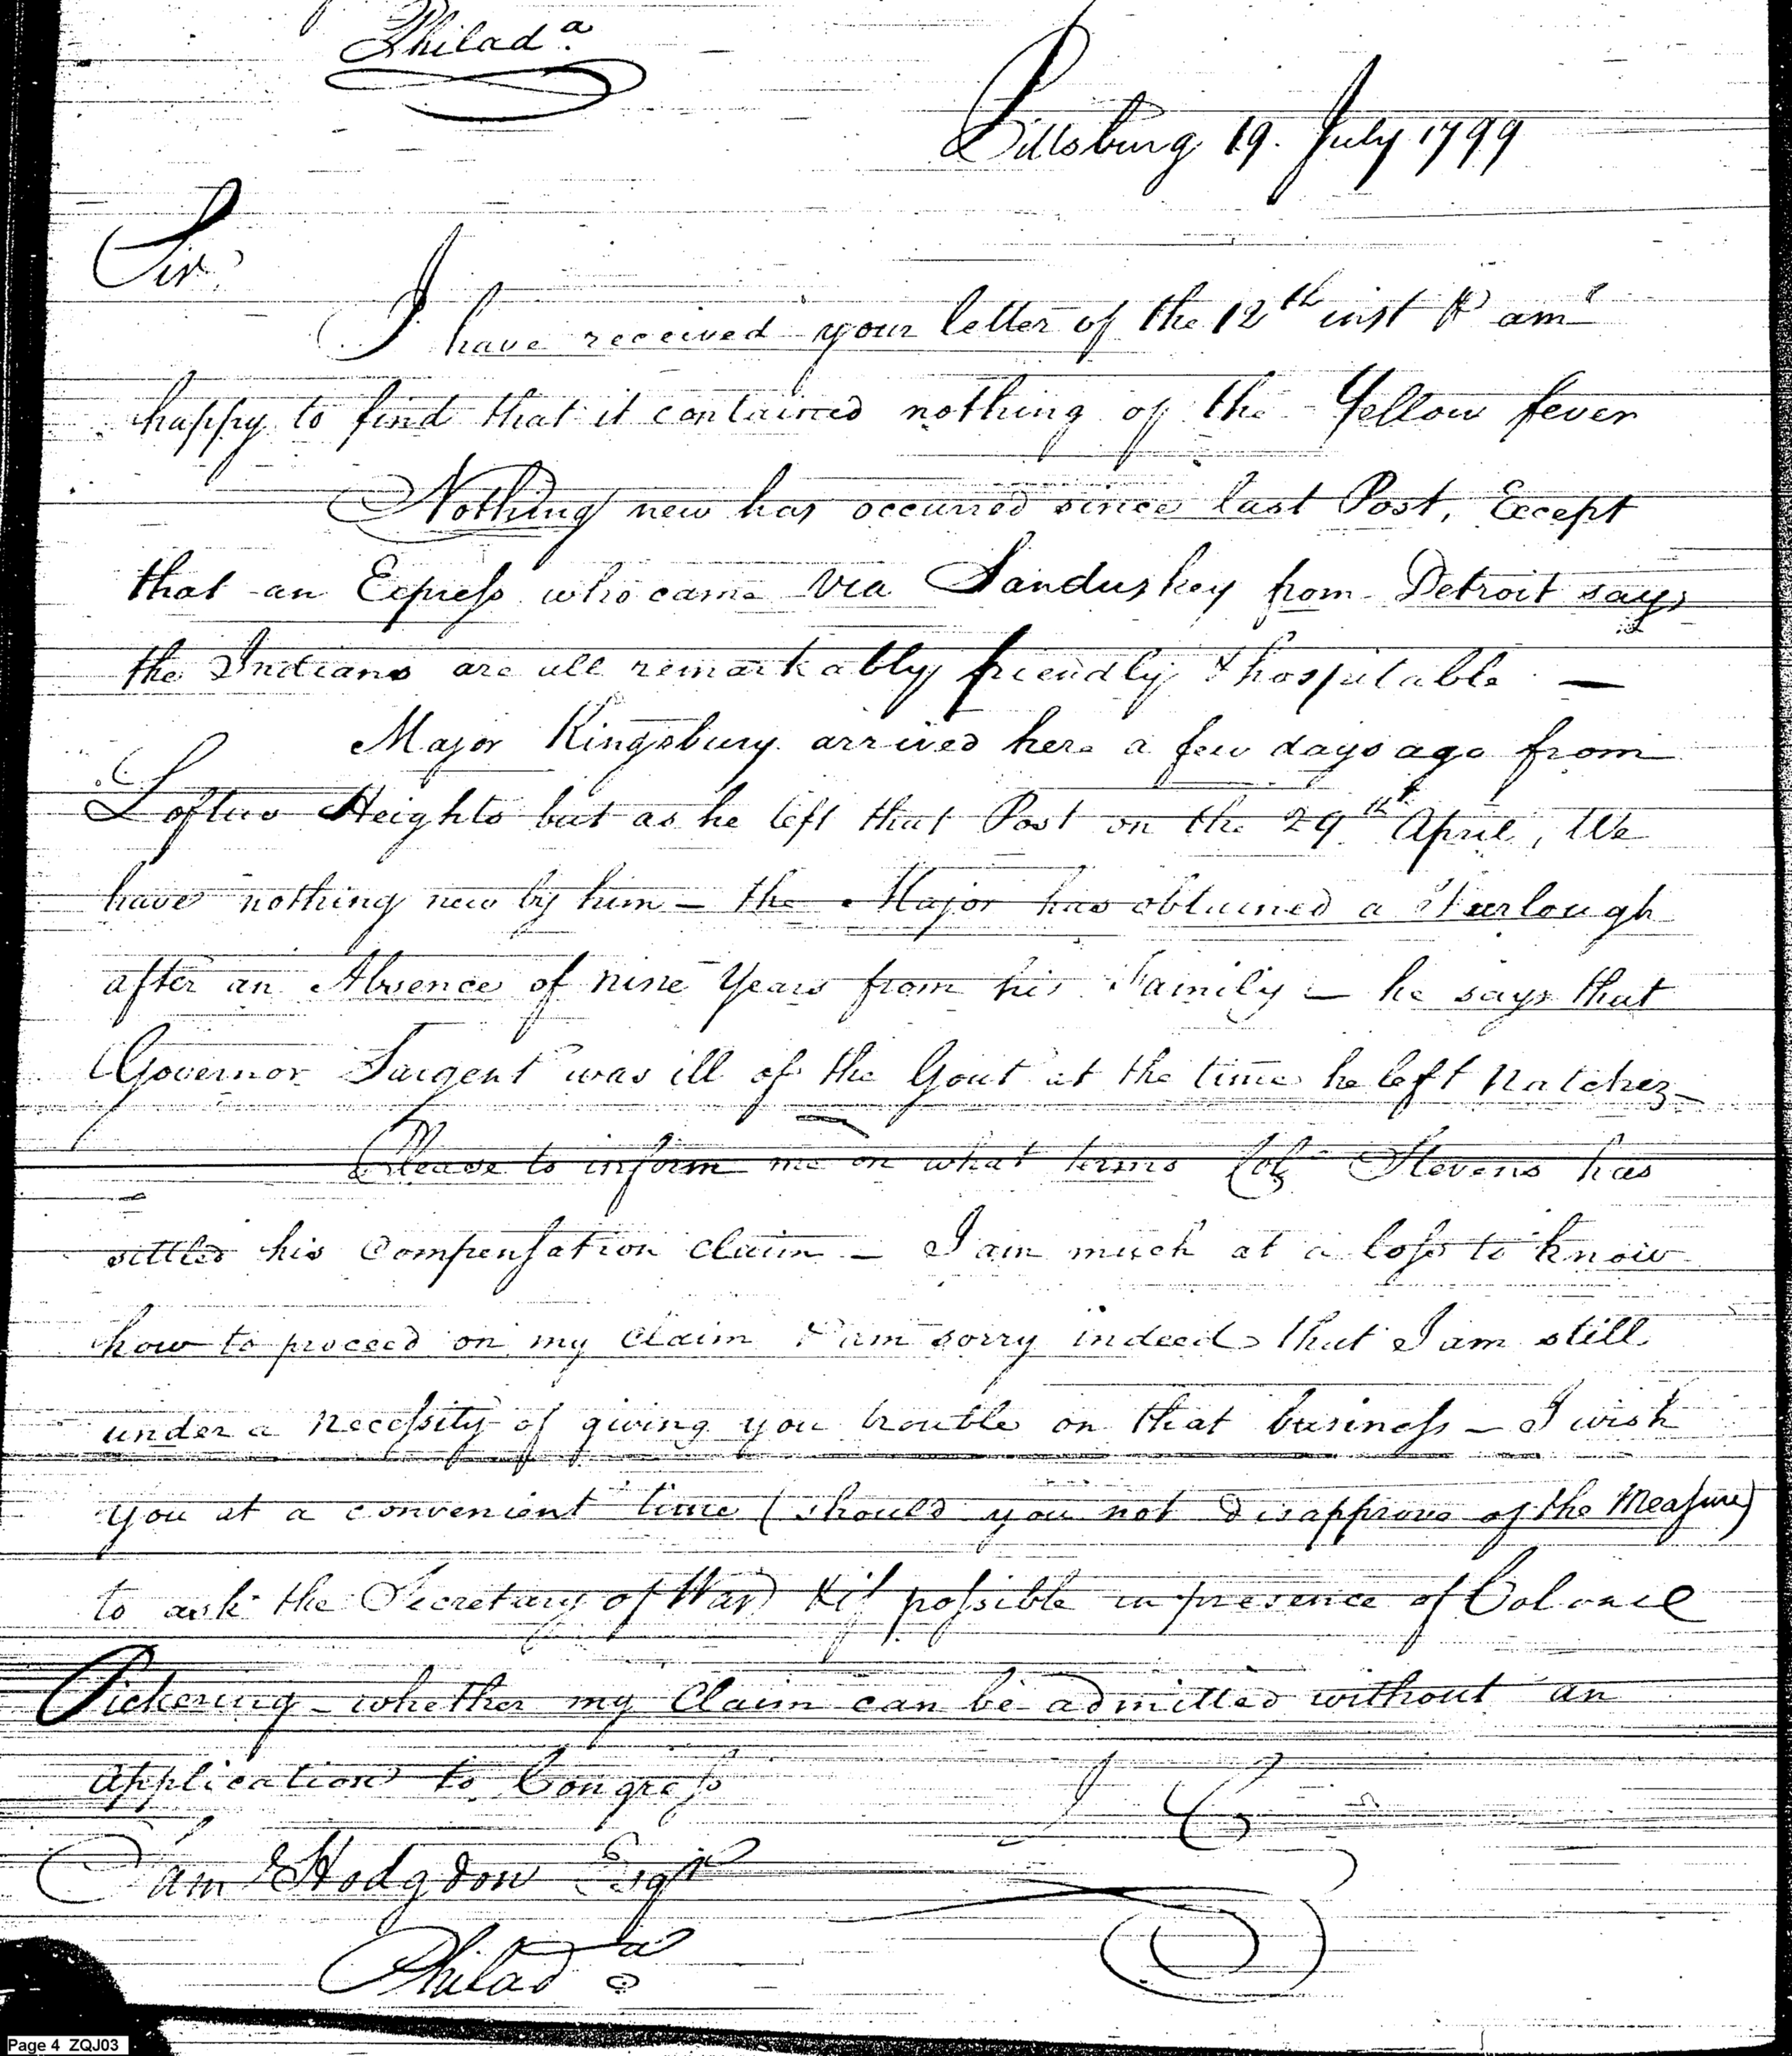 Philad.a
Pittsburg 19. July 1799
Sir
I have received your letter of the 12th inst & am
happy to find that it contained nothing of the Yellow fever
Nothing new has occurred since last Post, Except
that an Express who came via Sanduskey from Detroit says
the Indians are all remarkably friendly & hospitable —
Major Kingsbury arrived here a few days ago from
Loftus Heights but as he left that Post on the 29th April, We
have nothing new by him — the Major has obtained a Furlough
after an Absence of nine Years from his Family — he says that
Governor Sargent was ill of the Gout at the time he left Natchez —
Please to inform me on what terms Col. Stevens has
settled his Compensation claim — I am much at a loss to know
how to proceed on my claim & am sorry indeed that I am still
under a necessity of giving you trouble on that business — I wish
you at a convenient time (should you not disapprove of the Measure)
to ask the Secretary of War & if possible in presence of Colonel
Pickering — whether my Claim can be admitted without an
application to Congress
I C
Sam Hodgdon Esqr
Philad.a
Page 4 ZQJ03